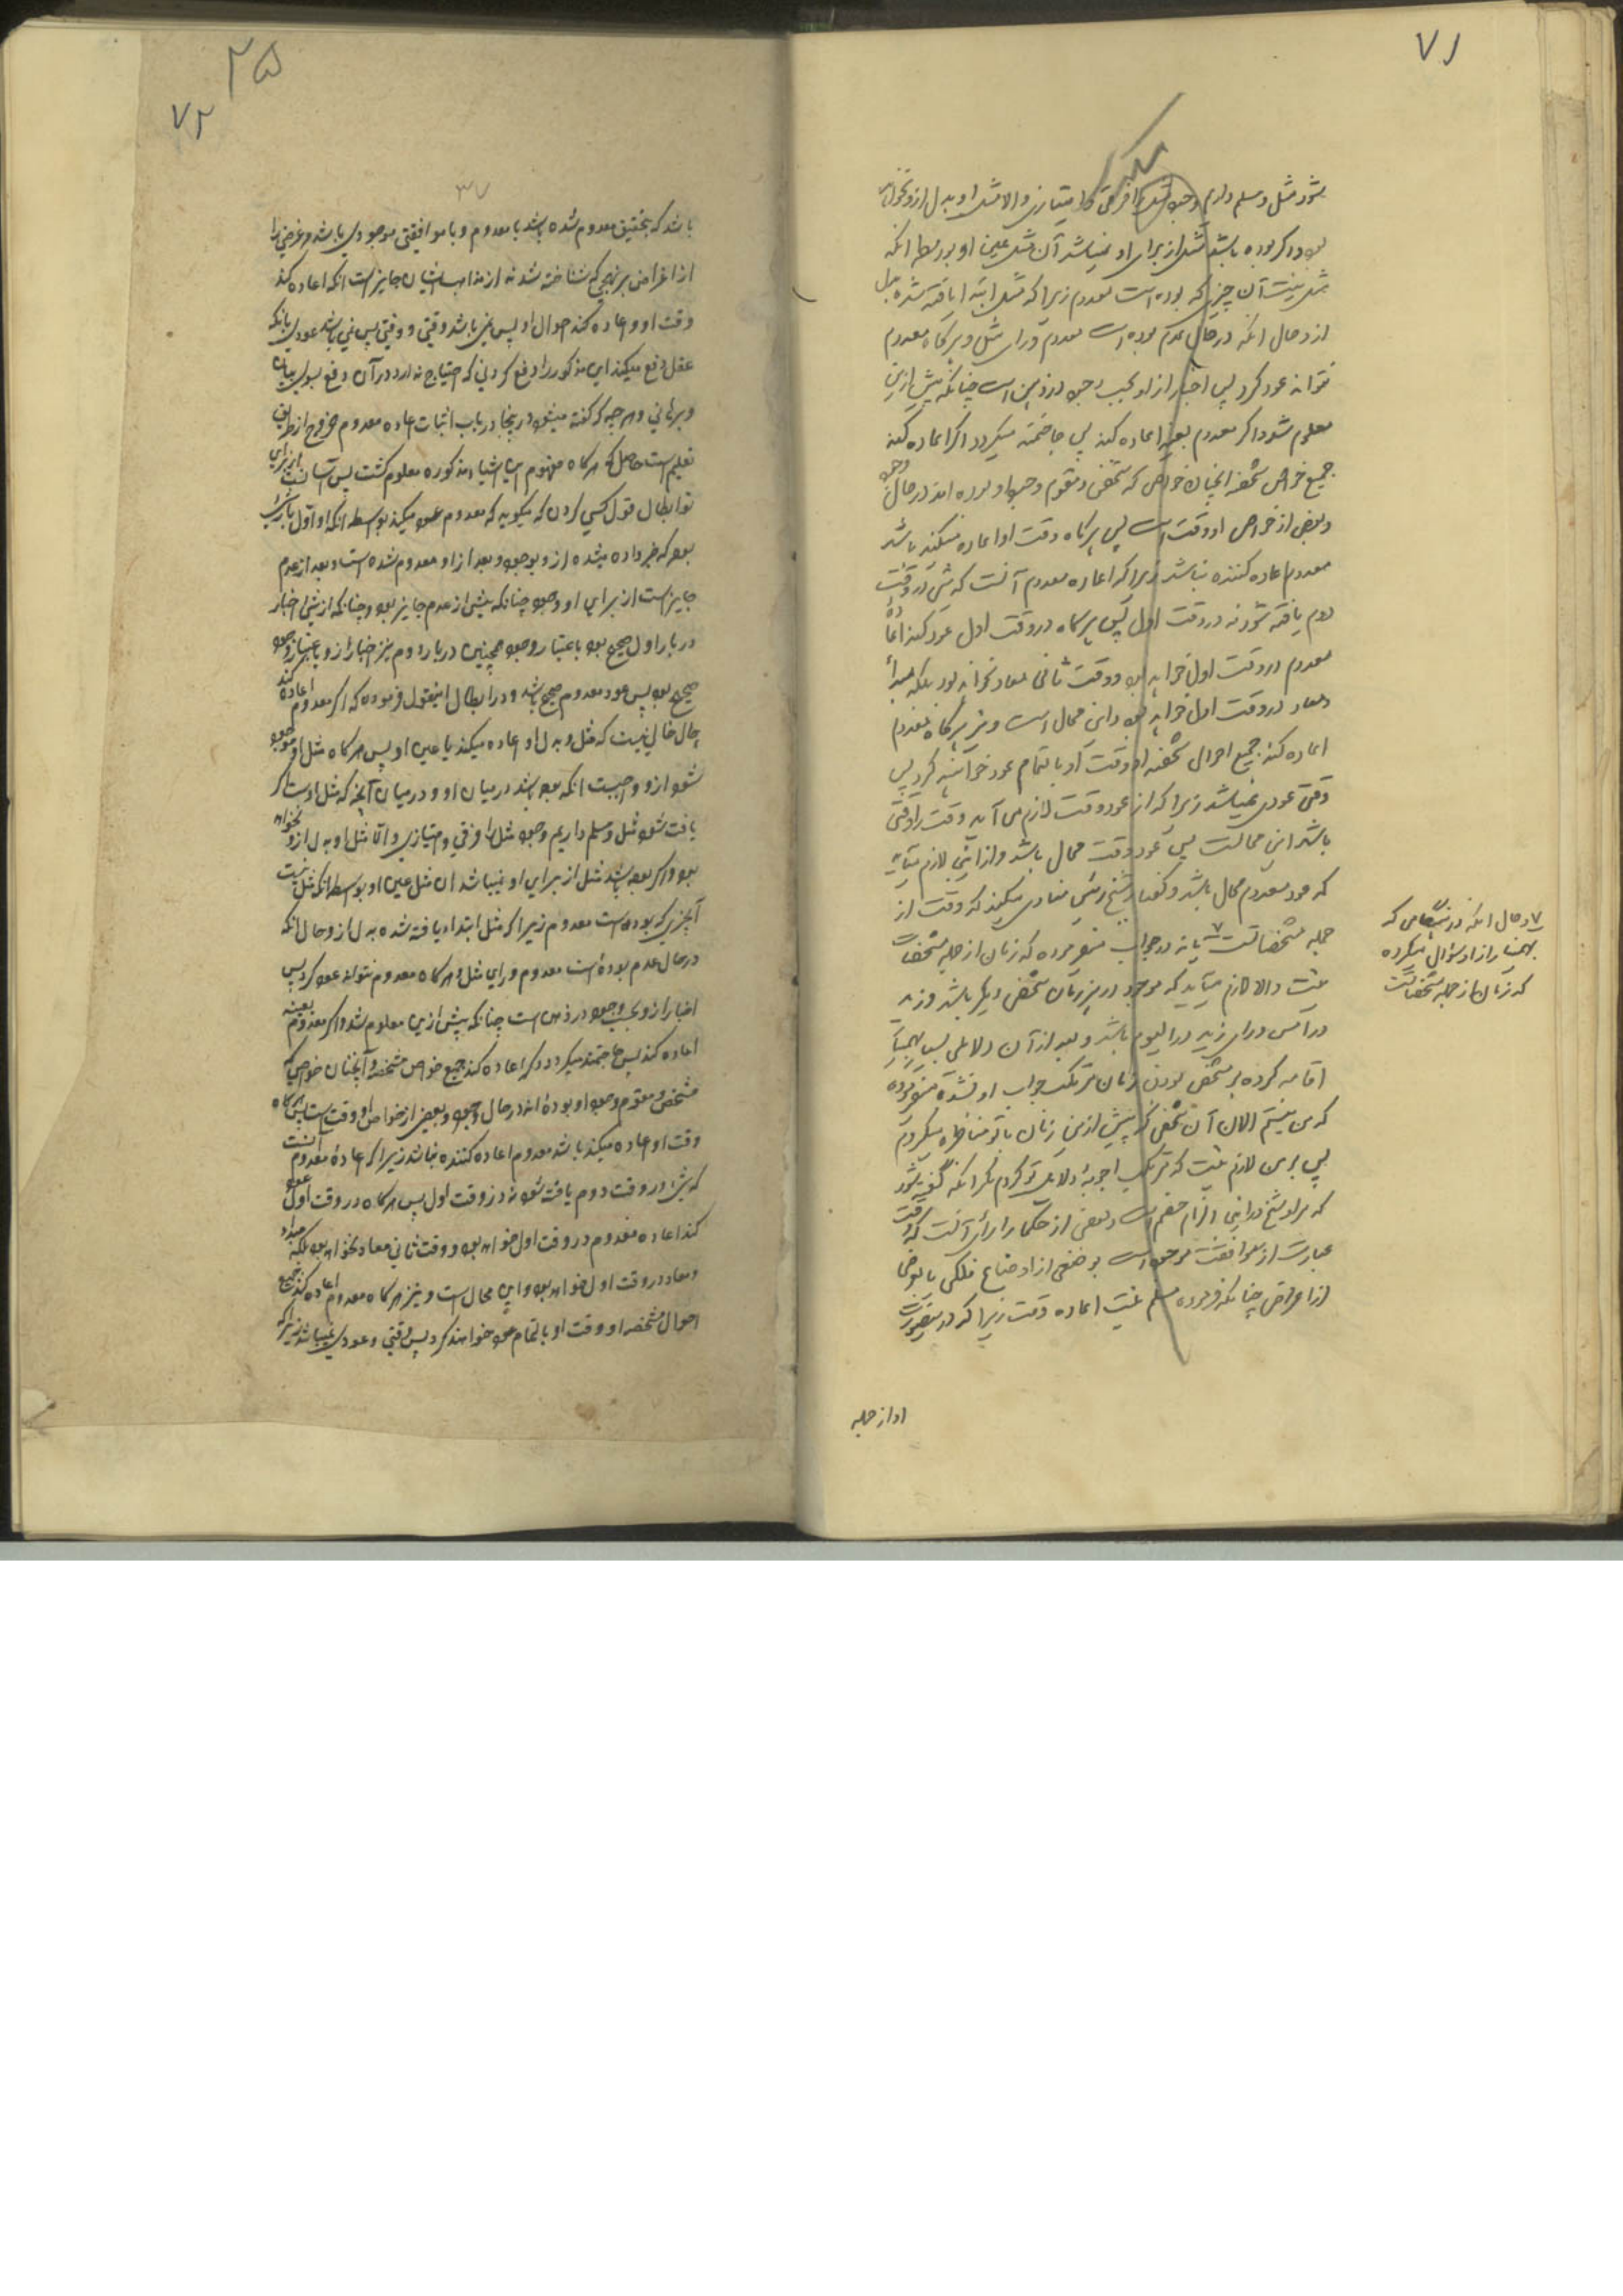 ۷۱
مکرر
شود مثل و مسلم داریم وجود مثل را فرقی و امتیازی والا مثل او بدل ازو نخواهد
بود و اگر بوده باشد مثل از برای او نمیباشد آن مثل عین او بواسطه انکه
مثل نیست آن چیزی که بوده است معدوم زیرا که مثل ابتدا یافته شده بدل
ازو حال انکه در حال عدم بوده است معدوم ورای مثل و هرکاه معدوم
نتواند عود کرد پس اخبار ازو بحسب وجود در ذهن است چنانکه پیش ازین
معلوم شود اکر معدوم بعینه اعاده کند پس حاجتمند میکردد اکر اعاده کند
جمیع خواص مشخصه آنچنان خواصی که مشخص و مقوم وجود او بوده اند در حال وجود
و بعضی از خواص او وقت است پس هرکاه وقت او اعاده میکند باشد
معدوم اعاده کننده نباشد زیرا که اعاده معدوم آنست که شیء در وقت
دوم یافته شود نه در وقت اول پس هرکاه در وقت اول عود کند اعاده
معدوم در وقت اول خواهد بود و وقت ثانی معاد نخواهد بود بلکه مبدأ
و معاد در وقت اول خواهد بود و این محال است و نیز هرکاه معدوم
اعاده کند جمیع احوال مشخصه او وقت او با تمام عود خواهند کرد پس
وقتی عودی نمیباشد زیرا که از عود وقت لازم می آید وقت را وقتی
باشد این محالست پس عود وقت محال باشد و ازاین لازم میآید
که عود معدوم محال باشد و گفتار شیخ رئیس منادی میکند که وقت از
جمله مشخصاتست ۷ یا نه در جواب میفرموده که زمان از جمله مشخصات
نیست والا لازم میآید که موجود در هر زمان شخص دیگر باشد و زید
در امس ورای زید در الیوم باشد و بعد از آن دلائلی بسیار بهمنیار
اقامه کرده بر مشخص بودن زمان مرتکب جواب او نشده میفرموده
که من نیستم الان آن شخص که پیش ازین زمان با تو مناظره میکردم
پس بر من لازم نیست که مرتکب اجوبهٔ دلائل تو کردم مگر انکه گفته شود
که مراد شیخ در اینجا الزام خصم است و بعضی از حکما را رای آنست که وقت
عبارت از موافقت موجود است بر وضعی از اوضاع فلکی یا بعرضی
از اعراض چنانکه فرموده مسلم نیست اعاده وقت زیرا که در نیصورت
او از جمله
۷ و حال انکه در هنگامی که
بهمنیار ازو سؤال میکرده
که زمان از جمله مشخصاتست
۳۵
۷۲
۳۷
باشد که بتحقیق معدوم شده باشد یا معدوم و یا موافقتی موجودی باشد و عرضی را
از اعراض بر نهجی که شناخته شد نه از مذاهب ایشان جایز است انکه اعاده کند
وقت او و اعاده کند احوال او پس نمی باشد وقتی و وقتی پس نمی باشد عودی بانکه
عقل دفع میکند این مذکور را دفع کردنی که احتیاج ندارد در آن دفع بسوی بیان
و برهانی و هرچه که گفته میشود در ینجا در باب اثبات اعاده معدوم خروج از طریق
تعلیم است حاصل که هرکاه مفهوم این اشیاء مذکوره معلوم گشت پس آسانست از برای
تو ابطال قول کسی کردن که میگوید که معدوم عود میکند بواسطه انکه او اول باشد
بود که خبر داده میشده ازو بوجود و بعد از او معدوم شده است و بعد از عدم
جایز است از برای او وجود چنانکه پیش از عدم جایز بود و چنانکه از شیء اخبار
در بار اول صحیح بود باعتبار وجود همچنین در بار دوم نیز اخبار ازو باعتبار وجود
صحیح بود پس عود معدوم صحیح باشد و در ابطال اینقول فرموده که اکر معدوم اعاده کند
حال خالی نیست که مثل و بدل او اعاده میکند یا عین او پس هرکاه مثل او موجود
شود ازو واجبست انکه بوده باشد در میان او و درمیان آنچه که مثل اوست اکر
یافت شود مثل و مسلم داریم وجود مثل را فرقی و امتیازی و الا مثل او بدل ازو نخواهد
بود و اکر بوده باشد مثل از برای او نمیباشد ان مثل عین او بواسطه انکه مثل نیست
آنچیزی که بوده است معدوم زیرا که مثل ابتداء یافته شده بدل ازو حال انکه
در حال عدم بوده است معدوم ورای مثل و هرکاه معدوم نتواند عود کرد پس
اخبار ازو بحسب وجود در ذهن است چنانکه پیش ازین معلوم شود و اکر معدوم بعینه
اعاده کند پس حاجتمند میکردد که اعاده کند جمیع خواص مشخصه و آنچنان خواصی که
مشخص و مقوم وجود او بوده اند در حال وجود و بعضی از خواص او وقت است پس هرکاه
وقت او اعاده میکند باشد معدوم اعاده کننده نباشد زیرا که اعادهٔ معدوم آنست
که شیء در وقت دوم یافت شود نه در وقت اول پس هرکاه در وقت اول عود
کند اعاده معدوم در وقت اول خواهد بود و وقت ثانی معاد نخواهد بود بلکه مبداء
و معاد در وقت اول خواهد بود و این محال است و نیز هرکاه معدوم اعاده کند جمیع
احوال مشخصه او و وقت او با تمام عود خواهند کرد پس وقتی و عودی نمیباشد زیرا که